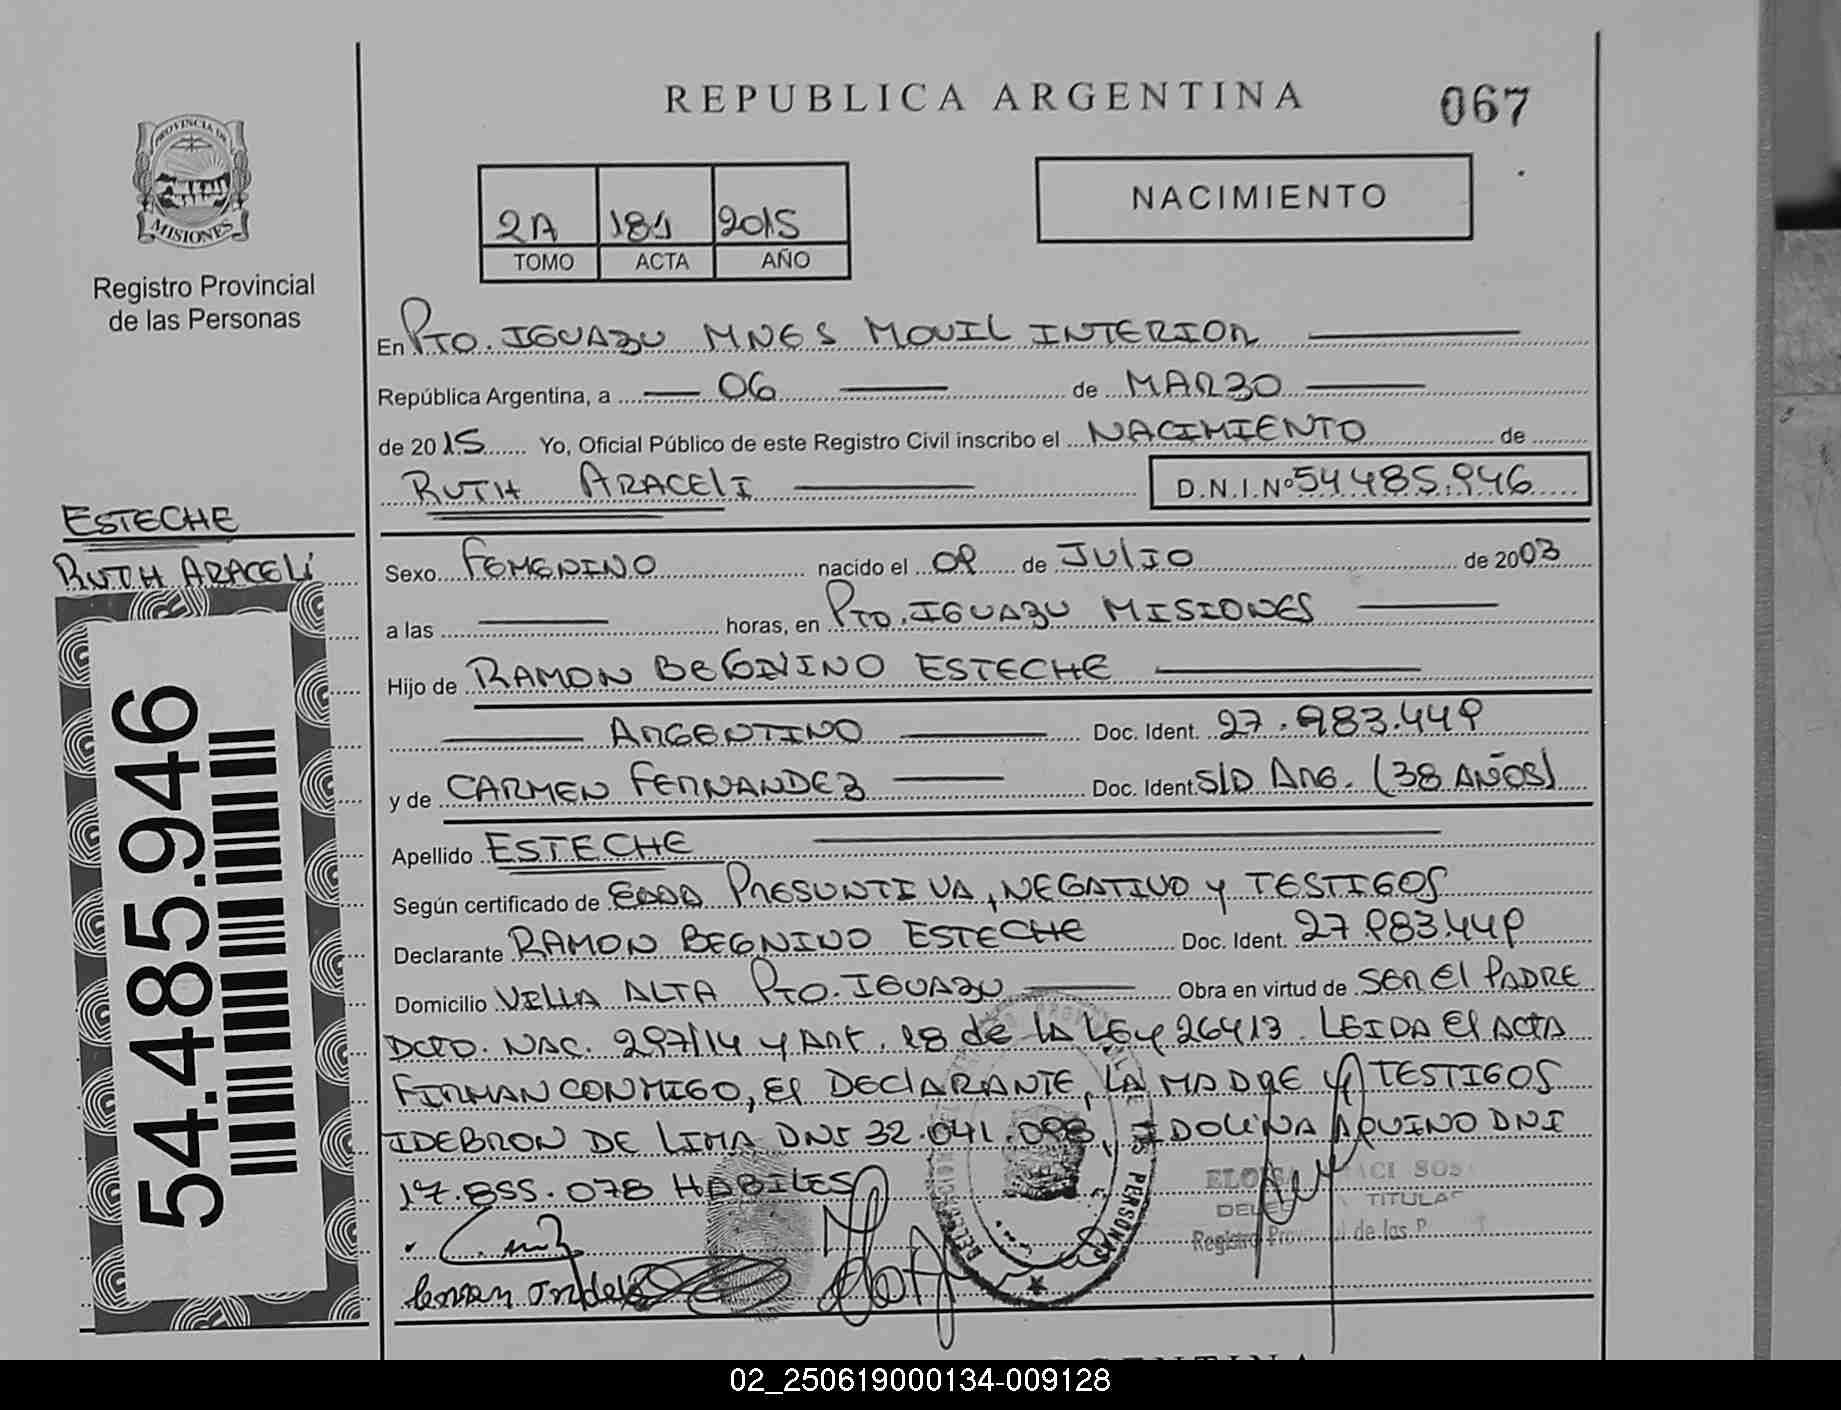 REPUBLICA ARGENTINA
067
PROVINCIA DE
MISIONES
Registro Provincial
de las Personas
2A 181 2015
TOMO ACTA AÑO
NACIMIENTO
En Pto. IGUAZU MNES MOVIL INTERIOR
República Argentina, a 06 de MARZO
de 2015 Yo, Oficial Público de este Registro Civil inscribo el NACIMIENTO de
RUTH ARACELI D.N.I.Nº 54.485.946
ESTECHE
RUTH ARACELI
54.485.946
Sexo FEMENINO nacido el 09 de JULIO de 2003
a las horas, en Pto. IGUAZU MISIONES
Hijo de RAMON BEGNINO ESTECHE
ARGENTINO Doc. Ident. 27.983.449
y de CARMEN FERNANDEZ Doc. Ident. S/D ARG. (38 AÑOS)
Apellido ESTECHE
Según certificado de EDAD PRESUNTIVA, NEGATIVO y TESTIGOS
Declarante RAMON BEGNINO ESTECHE Doc. Ident. 27.983.449
Domicilio VILLA ALTA Pto. IGUAZU Obra en virtud de SER El PADRE
DCTO. NAC. 297/14 y ART. 18 de LA LEY 26413. LEIDA El ACTA
FIRMAN CONMIGO, El DEClARANTE, LA MADRE y TESTIGOS
IDEBRON DE LIMA DNI 32.041.098, IDOLINA AQUINO DNI
17.855.078 HABILES
DE LAS PERSONAS
TITULAR
Registro Provincial de las P.
02_250619000134-009128